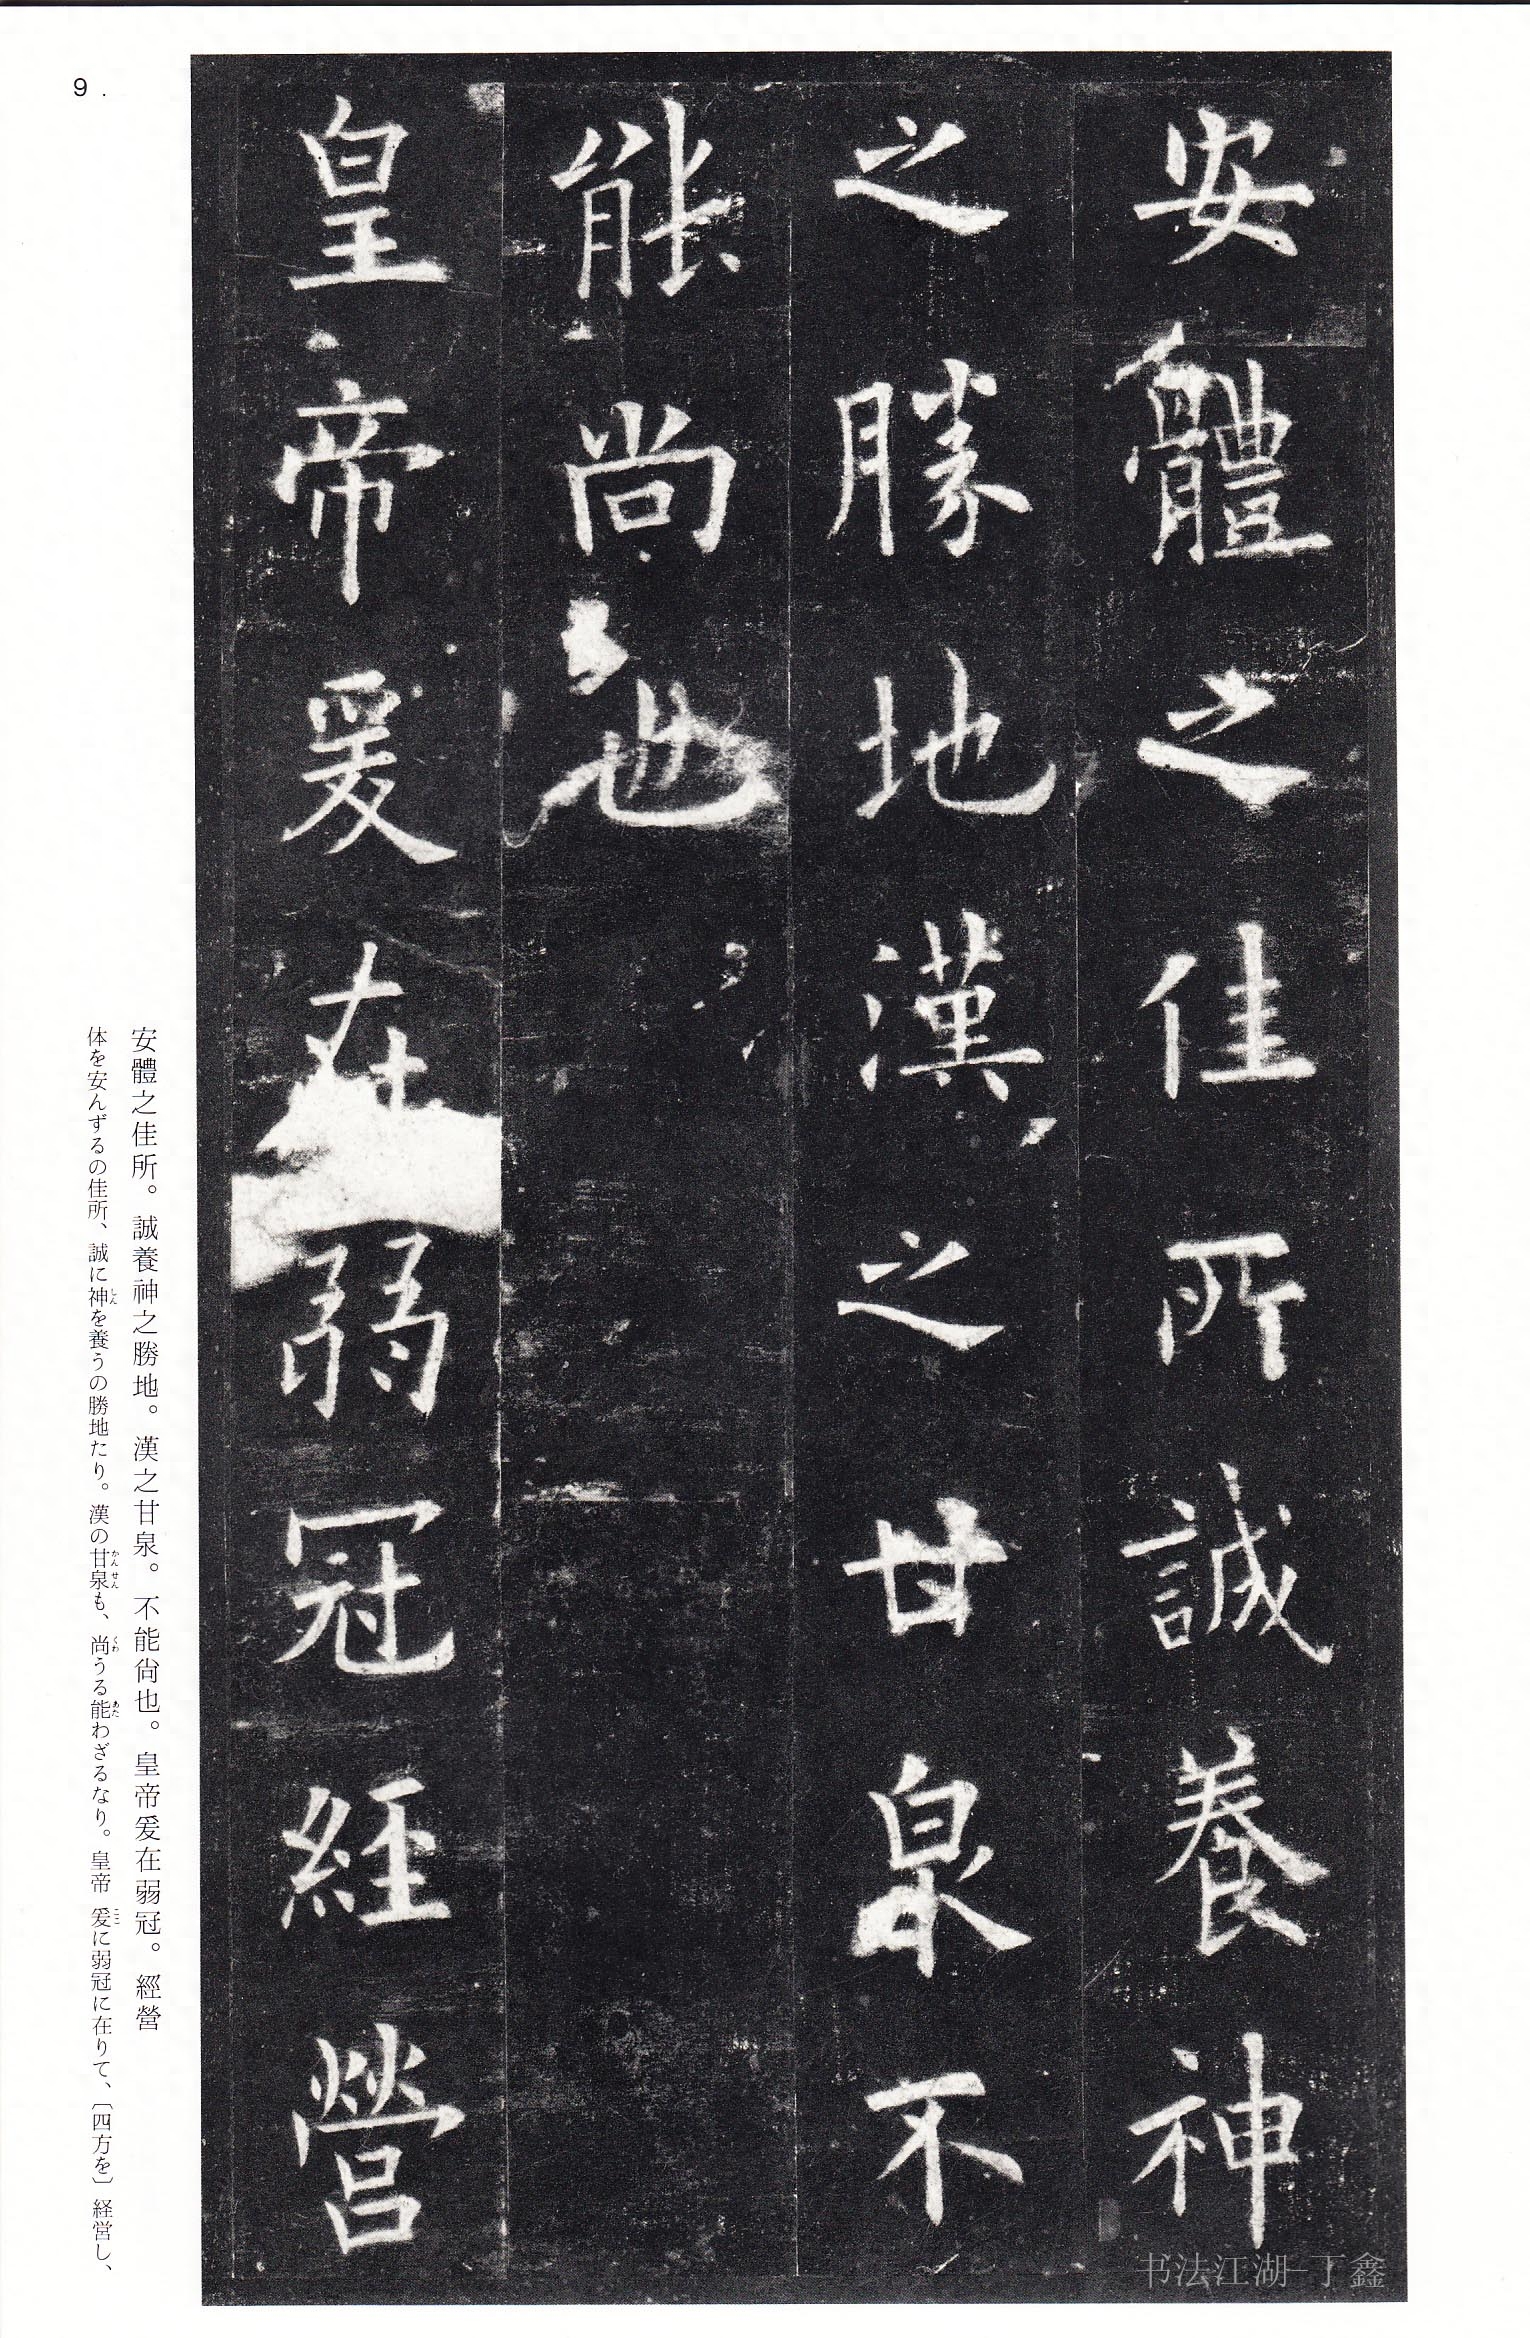 安體之佳所誠養神
之勝地漢之甘泉不
能尚也
皇帝爰在弱冠經營
安體之佳所。誠養神之勝地。漢之甘泉。不能尙也。皇帝爰在弱冠。經營
体を安んずるの佳所、誠に神しんを養うの勝地たり。漢の甘泉かんせんも、尚くわうる能あたわざるなり。皇帝 爰ここに弱冠に在りて、〔四方を〕経営し、
9
书法江湖–丁鑫